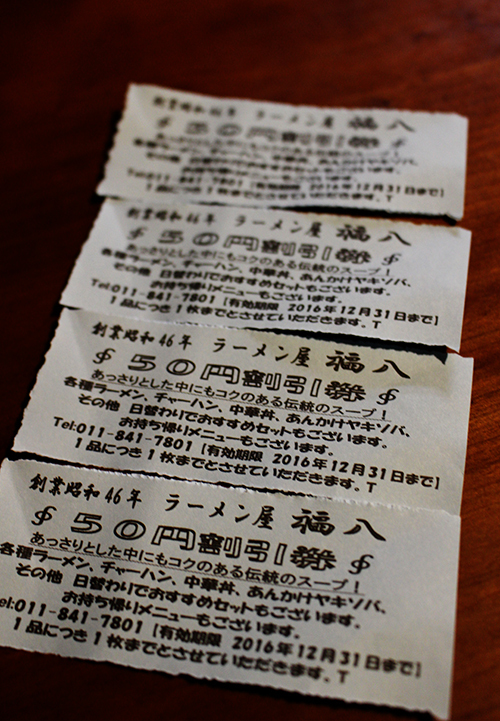 創業昭和46年 ラーメン屋 福八
50円割引券
あっさりとした中にもコクのある伝統のスープ!
その他 日替わりでおすすめセットもございます。
お持ち帰りメニューもございます。
Tel:011-841-7801 [有効期限 2016年12月31日まで]
1品につき1枚までとさせていただきます。T
創業昭和46年 ラーメン屋 福八
$ 50円割引券 $
あっさりとした中にもコクのある伝統のスープ!
各種ラーメン、チャーハン、中華丼、あんかけヤキソバ、
その他 日替わりでおすすめセットもございます。
お持ち帰りメニューもございます。
Tel:011-841-7801 [有効期限 2016年12月31日まで]
1品につき1枚までとさせていただきます。T
創業昭和46年 ラーメン屋 福八
$ 50円割引券 $
あっさりとした中にもコクのある伝統のスープ!
各種ラーメン、チャーハン、中華丼、あんかけヤキソバ、
その他 日替わりでおすすめセットもございます。
お持ち帰りメニューもございます。
Tel:011-841-7801 [有効期限 2016年12月31日まで]
1品につき1枚までとさせていただきます。T
創業昭和46年 ラーメン屋 福八
$ 50円割引券 $
あっさりとした中にもコクのある伝統のスープ!
各種ラーメン、チャーハン、中華丼、あんかけヤキソバ、
その他 日替わりでおすすめセットもございます。
お持ち帰りメニューもございます。
el:011-841-7801 [有効期限 2016年12月31日まで]
1品につき1枚までとさせていただきます。T